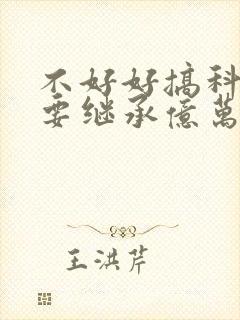 不好好搞科
要继承億萬
王洪芹